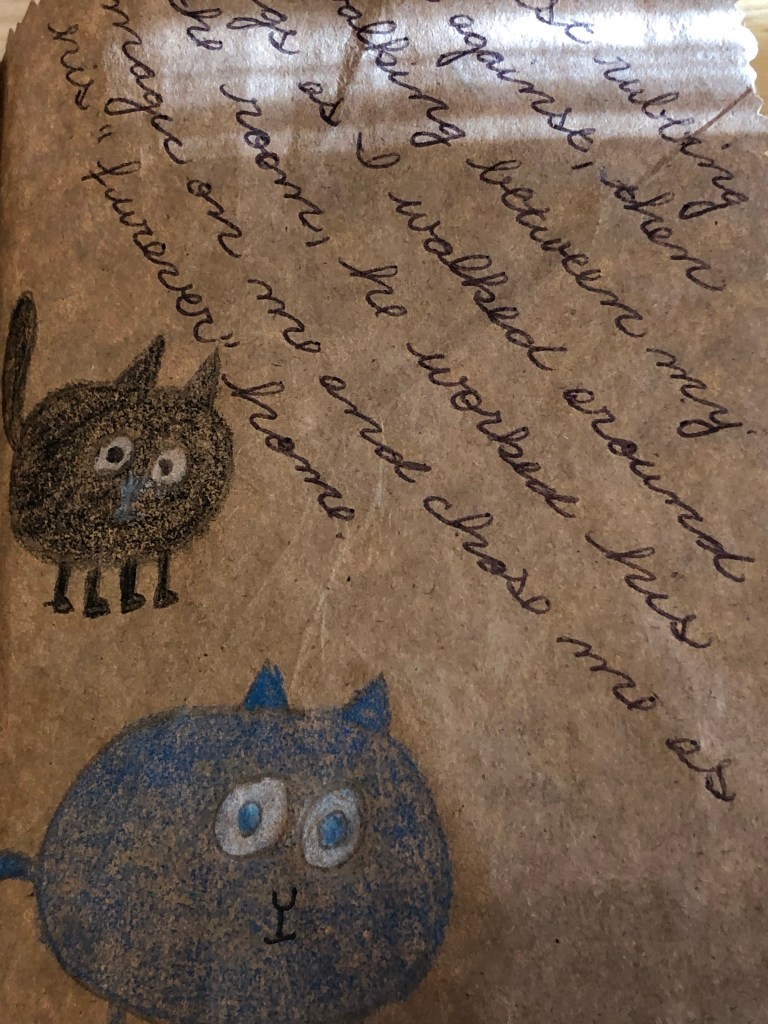 st rubbing
against, then
alking between my
gs as I walked around
the room, he worked his
magic on me and chose me as
his "furever" home.